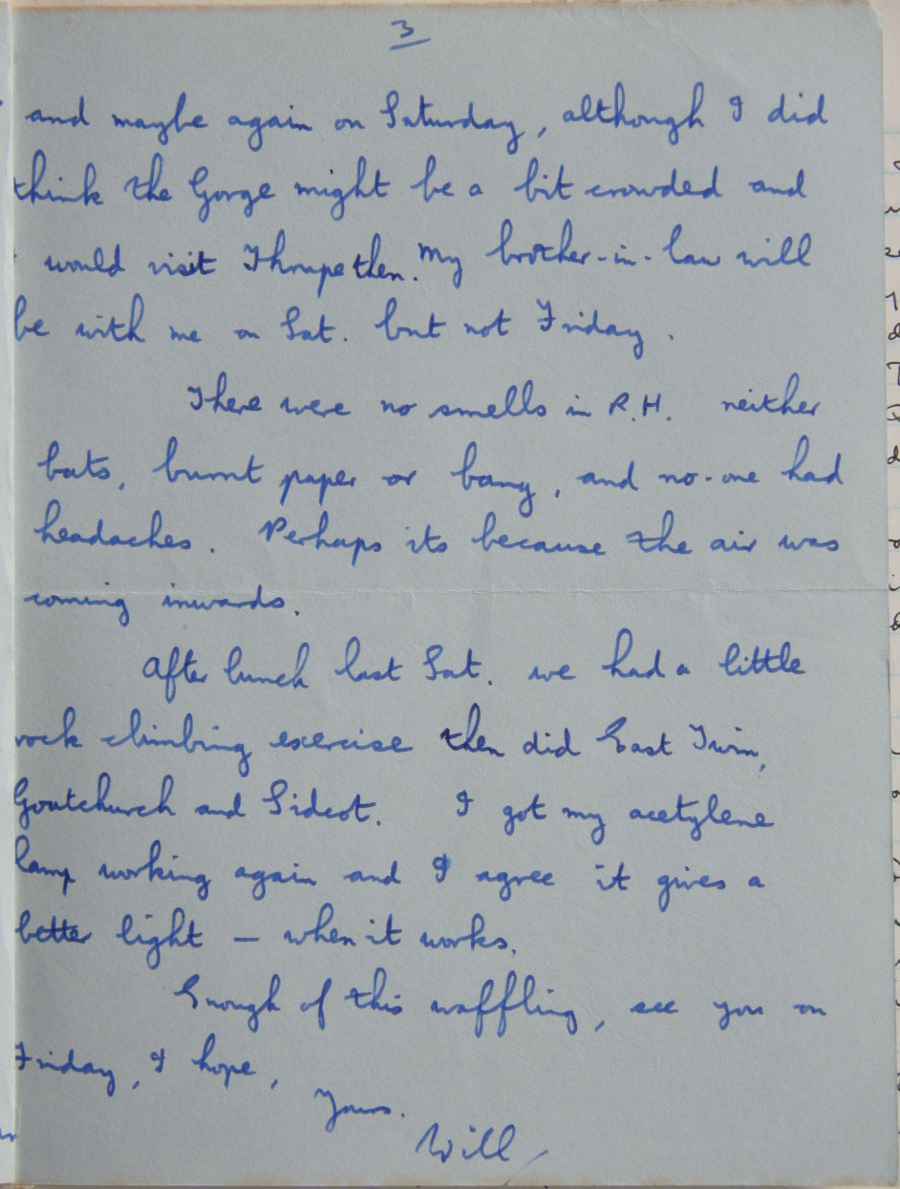 3
and maybe again on Saturday, although I did
think the Gorge might be a bit crowded and
would visit Thrupe then. My brother-in-law will
be with me on Sat. but not Friday.
There were no smells in R.H. neither
bats, burnt paper or bang, and no-one had
headaches. Perhaps its because the air was
coming inwards.
After lunch last Sat. we had a little
rock climbing exercise then did East Twin,
Goatchurch and Sidcot. I got my acetylene
lamp working again and I agree it gives a
better light — when it works.
Enough of this waffling, see you on
Friday, I hope,
Yours.
Will